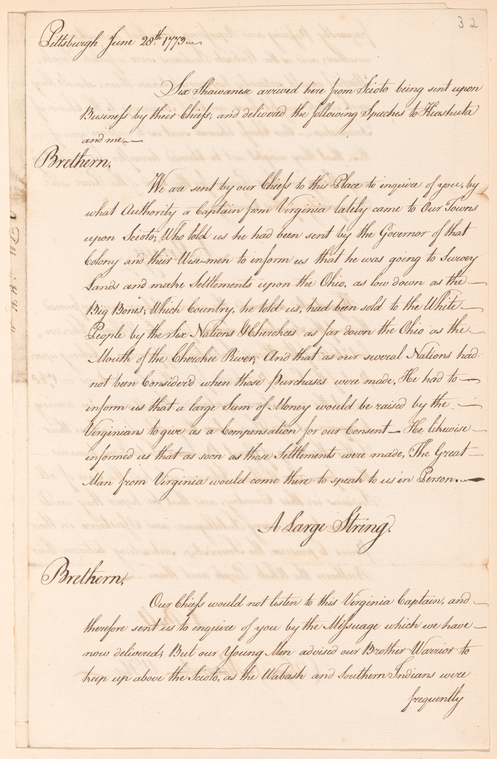 32
Pittsburgh June 28th 1773
Six Shawanese arrived here from Scioto being sent upon
Business by their Chiefs, and delivered the following Speeches to Kiasshuta
and me.
Brethern,
We are sent by our Chiefs to this Place to inquire of you, by
what Authority a Captain from Virginia lately came to Our Towns
upon Scioto, Who told us he had been sent by the Governor of that
Colony and their Wise-men to inform us that he was going to Survey
Lands and make Settlements upon the Ohio, as low down as the
Big Bones, Which Country, he told us, had been sold to the White
People by the Six Nations & Cherokees as far down the Ohio as the
Mouth of the Cherokee River, And that as our several Nations had
not been Considerd when those Purchases were made, He had to
inform us that a large Sum of Money would be raised by the
Virginians to give as a Compensation for our Consent — He likewise
informed us that as soon as those Settlements were made, The Great
Man from Virginia would come there to speak to us in Person.
A Large String.
Brethern,
Our Chiefs would not listen to this Virginia Captain, and
therefore sent us to enquire of you by the Messuage which we have
now delivered; But our Young Men advised our Brother Warrior to
keep up above the Scioto, as the Wabash and Southern Indians were
frequently